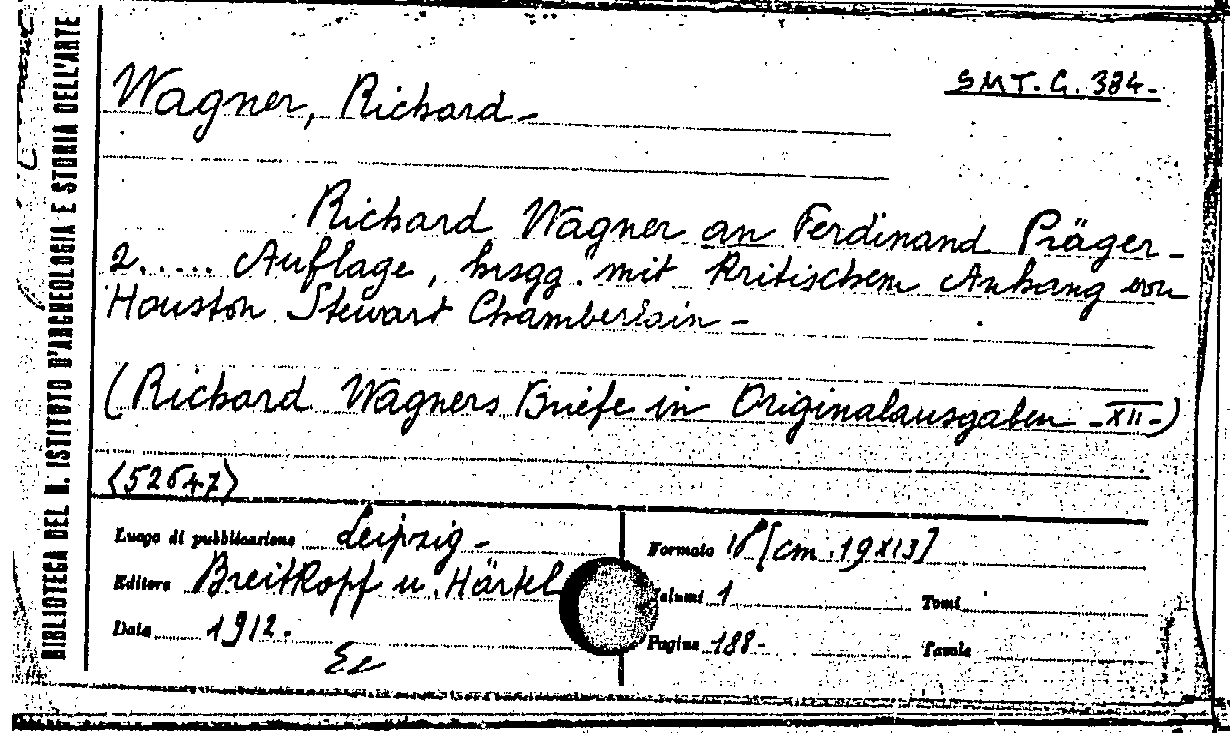 BIBLIOTECA DEL R. ISTITUTO D'ARCHEOLOGIA E STORIA DELL'ARTE
SMT. G. 384.-
Wagner, Richard-
Richard Wagner an Ferdinand Präger -
2..... Auflage, hrsgg. mit Kritischem Anhang von
Houston Stewart Chamberlain -
(Richard Wagners Briefe in Originalausgaben -XII-)
<52647>
Luogo di pubblicazione Leipzig -
Editore Breitkopf u. Härtel
Data 1912.
Formato [cm. 19x13]
Volumi 1
Tomi
Pagine 188-
Tavole